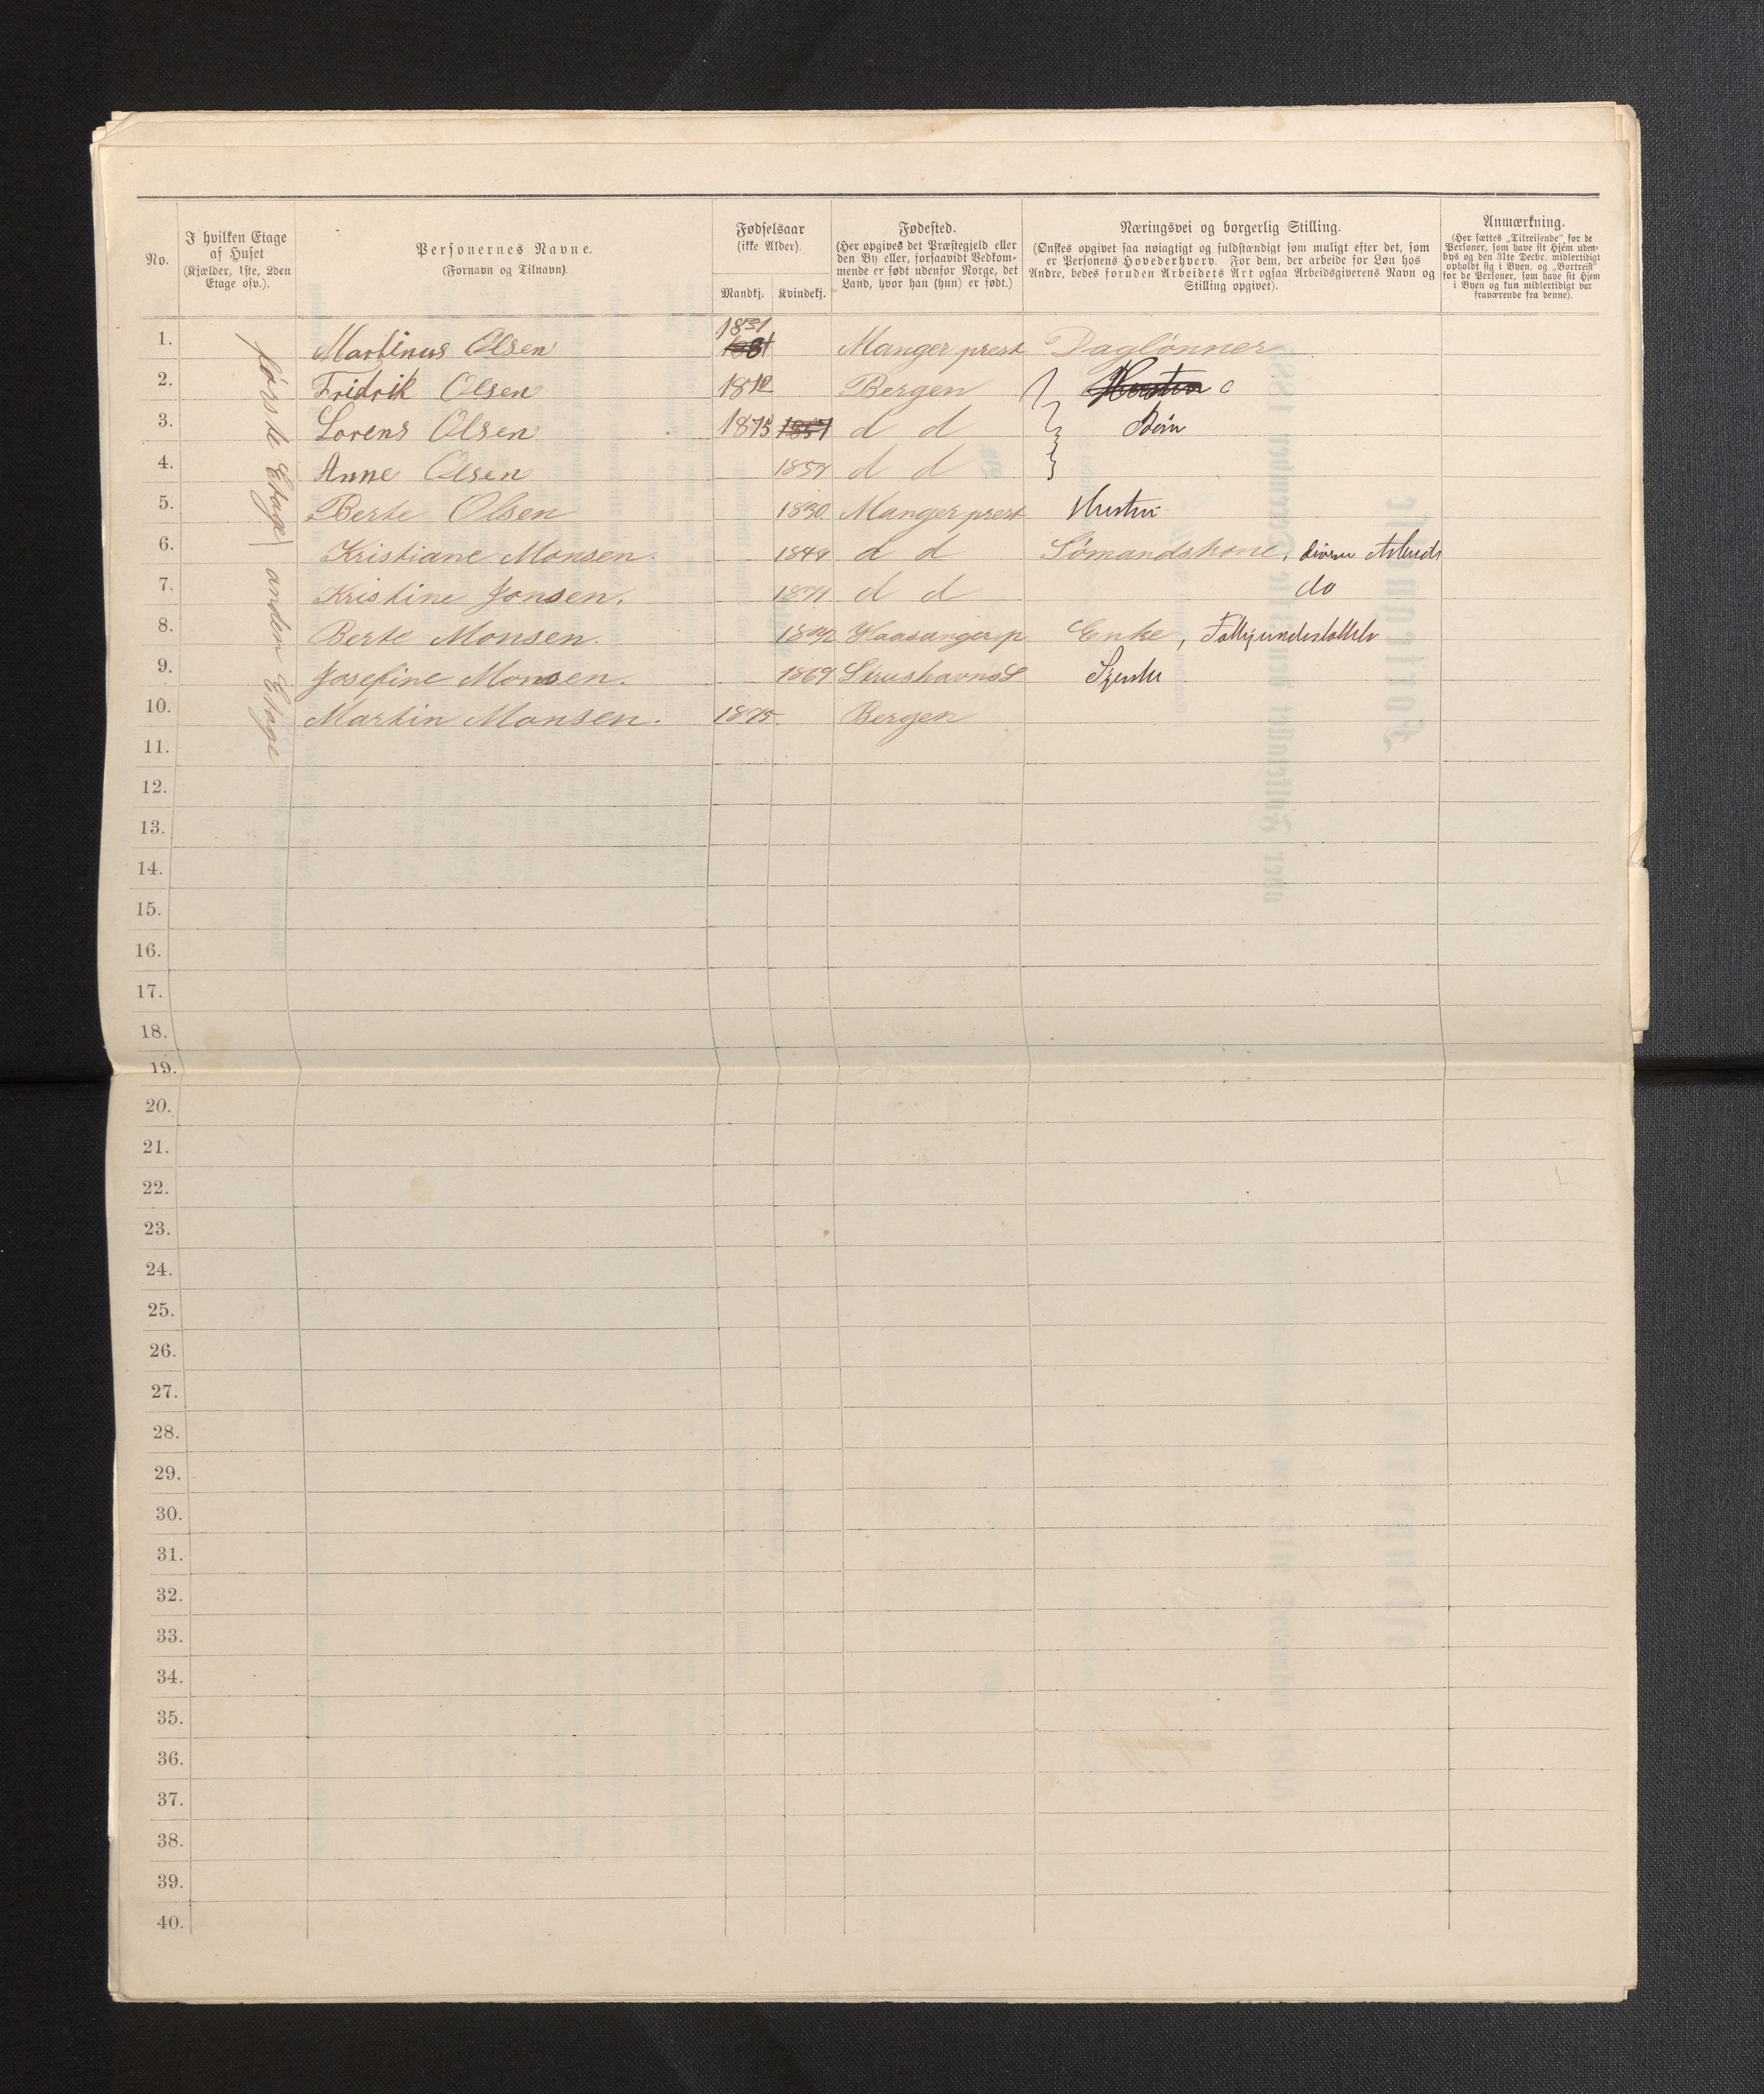 No.
I hvilken Etage
af Huset
(Kjælder, 1ste, 2den
Etage osv.).
Personernes Navne.
(Fornavn og Tilnavn).
Fødselsaar
(ikke Alder).
Mandkj. Kvindekj.
Fødested.
(Her opgives det Præstegjeld eller
den By eller, forsaavidt Vedkom-
mende er født udenfor Norge, det
Land, hvor han (hun) er født.)
Næringsvei og borgerlig Stilling.
(Ønskes opgivet saa nøiagtigt og fuldstændigt som muligt efter det, som
er Personens Hovederhverv. For dem, der arbeide for Løn hos
Andre, bedes foruden Arbeidets Art ogsaa Arbeidsgiverens Navn og
Stilling opgivet).
Anmærkning.
(Her sættes „Tilreisende“ for de
Personer, som have sit Hjem uden-
bys og den 31te Decbr. midlertidigt
opholdt sig i Byen, og „Bortreist“
for de Personer, som have sit Hjem
i Byen og kun midlertidigt var
fraværende fra denne).
første Etage
anden Etage
1831
1. Martinus Olsen Manger prest Daglønner
2. Fridrik Olsen Bergen
3. Lorens Olsen 1875 d d Børn
4. Anne Olsen d d
5. Berte Olsen 1830 Manger prest Hustru
6. Kristiane Monsen. d d Sømandskone, diverse
7. Kristine Jonsen. 1871 d d do
8. Berte Monsen. Enke,
9. Josefine Monsen. 1869
10. Martin Monsen. 1875 Bergen
11.
12.
13.
14.
15.
16.
17.
18.
19.
20.
21.
22.
23.
24.
25.
26.
27.
28.
29.
30.
31.
32.
33.
34.
35.
36.
37.
38.
39.
40.